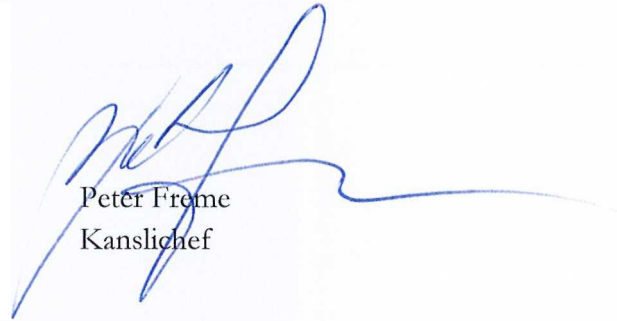 Peter Freme
Kanslichef